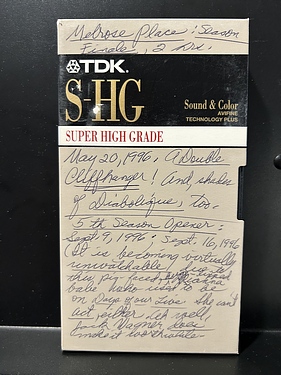 Melrose Place: Season
Finale, 2 hrs.
TDK.
S-HG
Sound & Color
AVIFINE
TECHNOLOGY PLUS
SUPER HIGH GRADE
May 20, 1996. A Double
Cliffhanger! And, shades
of Diabolique, too.
5th Season Opener:
Sept. 9, 1996; Sept. 16, 1996
(It is becoming virtually
unwatchable
this pig-faced
babe who used to be
on Days of our Lives She can't
act, either. Oh well,
Jack Wagner does
make it worthwhile.